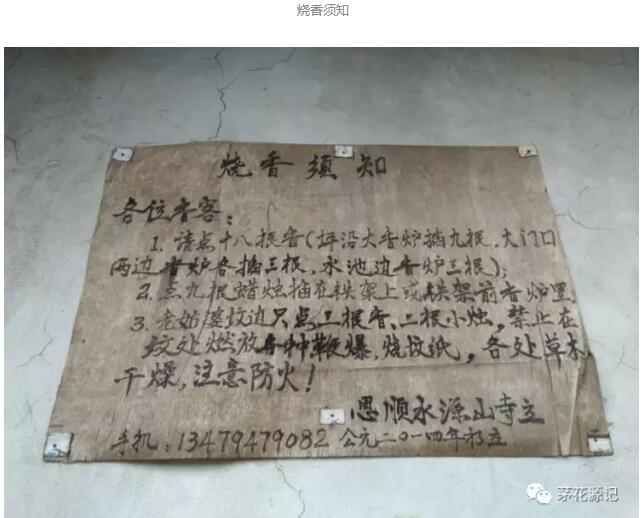 烧香须知
烧香须知
各位香客：
1. 请点十八根香(坪沿大香炉插九根,大门口
两边香炉各插三根,水池边香炉三根);
2. 点九根蜡烛插在铁架上或铁架前香炉里
3. 老始婆坟边只点三根香、二根小烛，禁止在
坟处燃放各种鞭爆,烧纸,各处草木
干燥,注意防火!
恩顺水源山寺立
手机:13479479082 公元二〇一四年初立
茅花源记